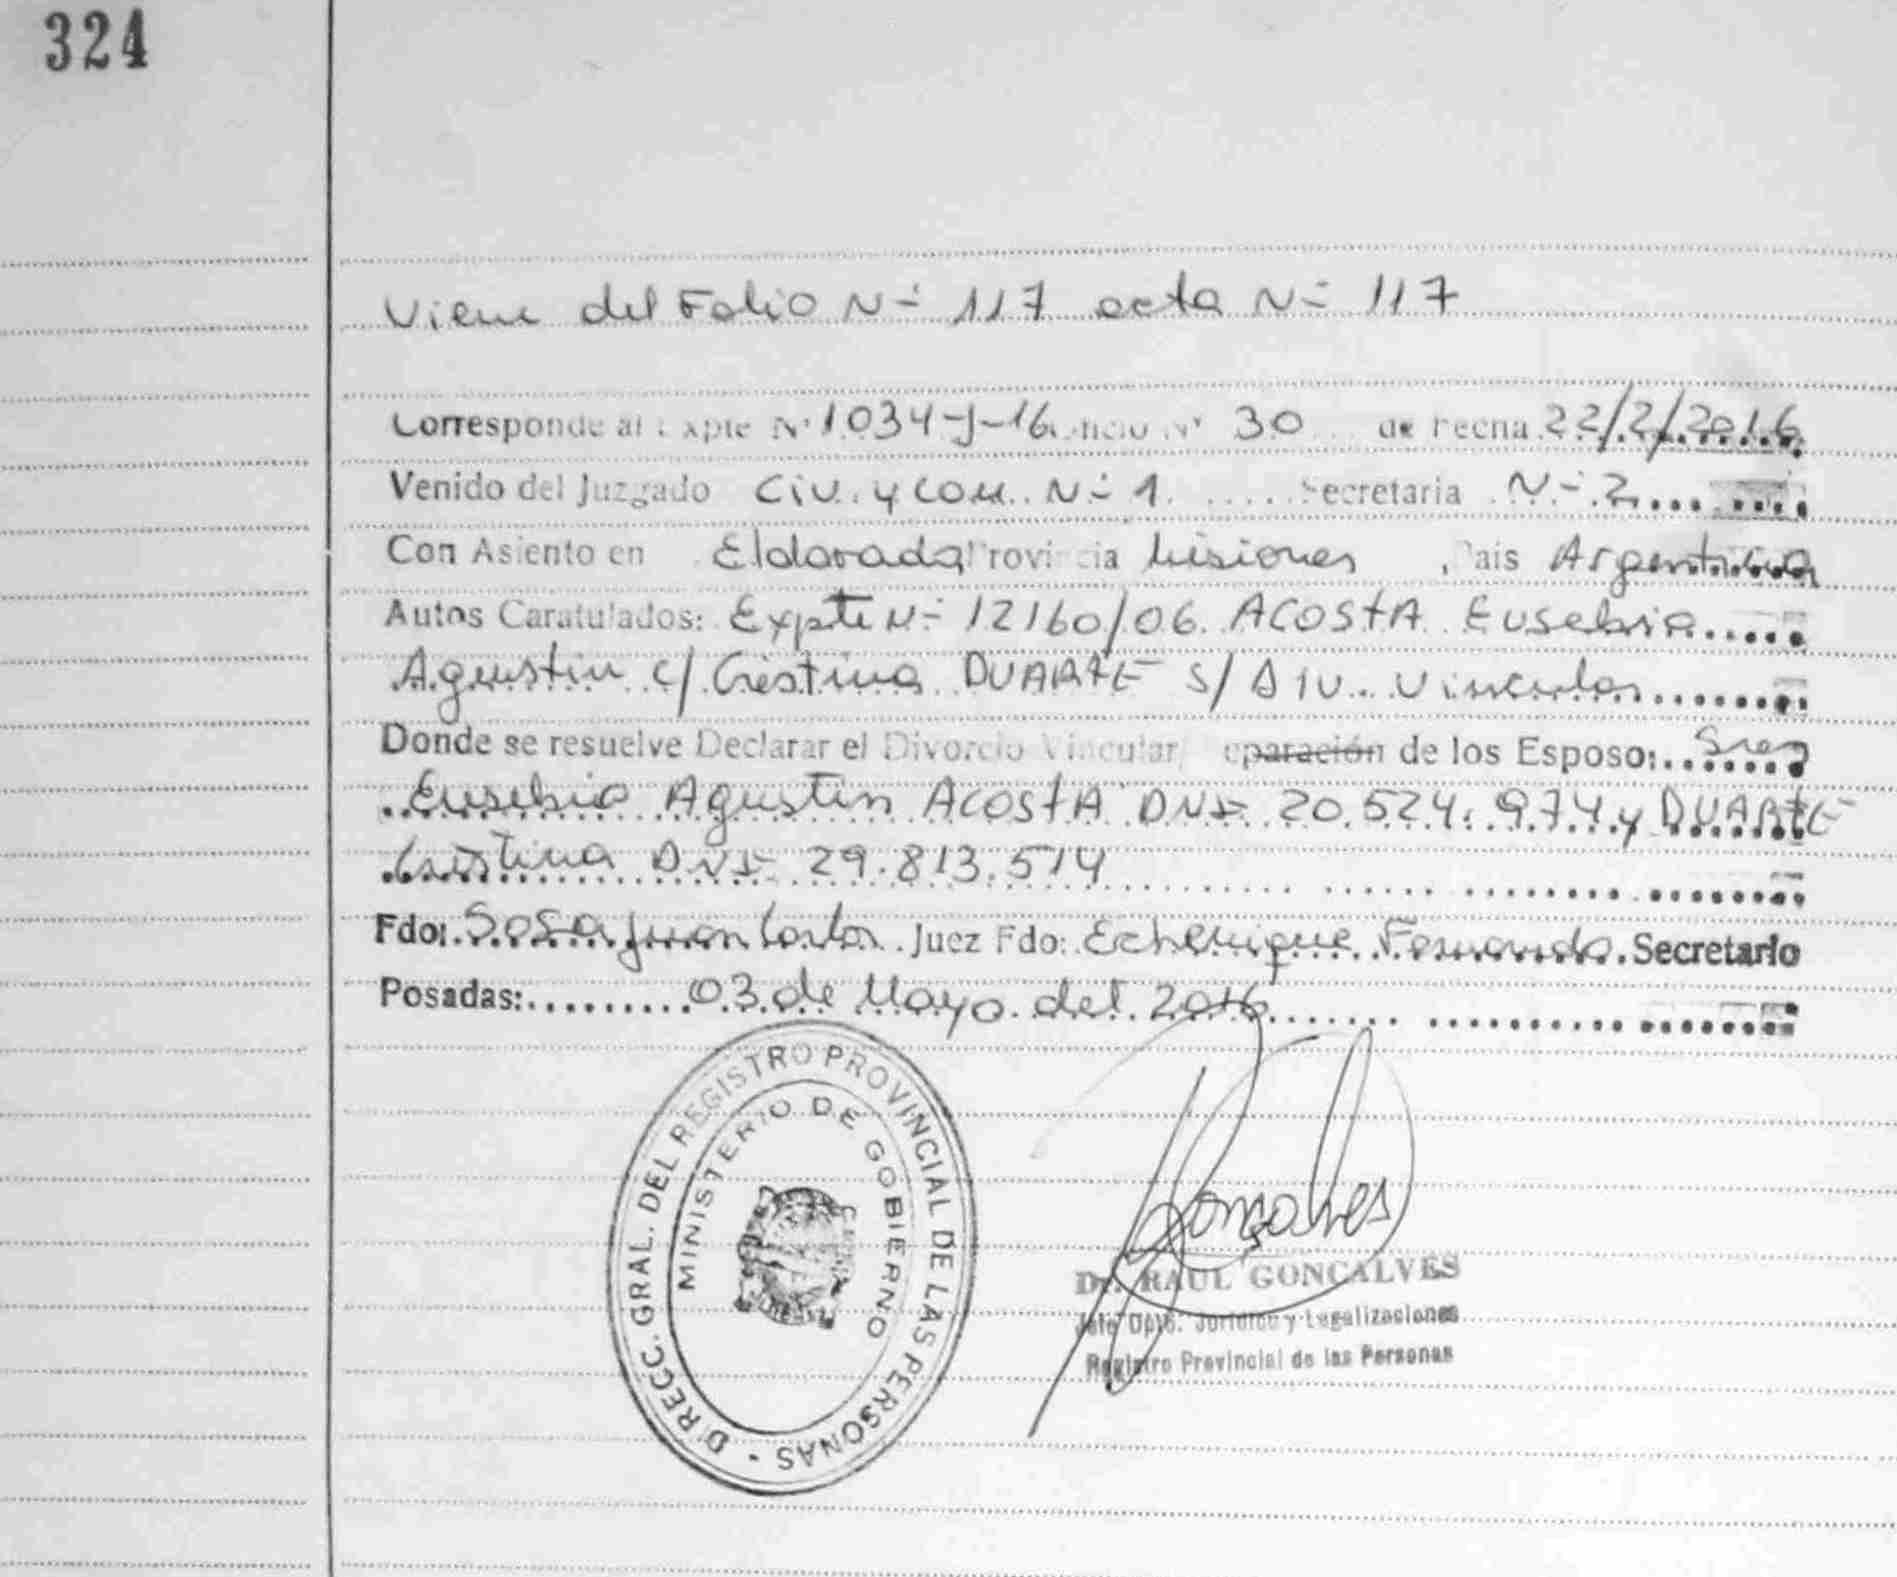 324
Viene del Folio N° 117 acta N° 117
Corresponde al Expte N° 1034-J-16 Oficio N° 30 de Fecha 22/2/2016
Venido del Juzgado Civ. y Com. N° 1 Secretaria N° 2
Con Asiento en Eldorado, Provincia Misiones, Pais Argentina
Autos Caratulados: Expte N° 12160/06 ACOSTA Eusebio
Agustin c/ Cristina DUARTE s/ Div. Vincular
Donde se resuelve Declarar el Divorcio Vincular/ Separación de los Esposo: Sres
Eusebio Agustin ACOSTA DNI 20.524.974 y DUARTE
Cristina DNI 29.813.514
Fdo: Sosa Juan Carlos Juez Fdo: Echenique Fernando Secretario
Posadas: 03 de Mayo del 2016
DIRECC. GRAL. DEL REGISTRO PROVINCIAL DE LAS PERSONAS
MINISTERIO DE GOBIERNO
Gonçalves
Dr. RAUL GONCALVES
Jefe Dpto. Jurídico y Legalizaciones
Registro Provincial de las Personas